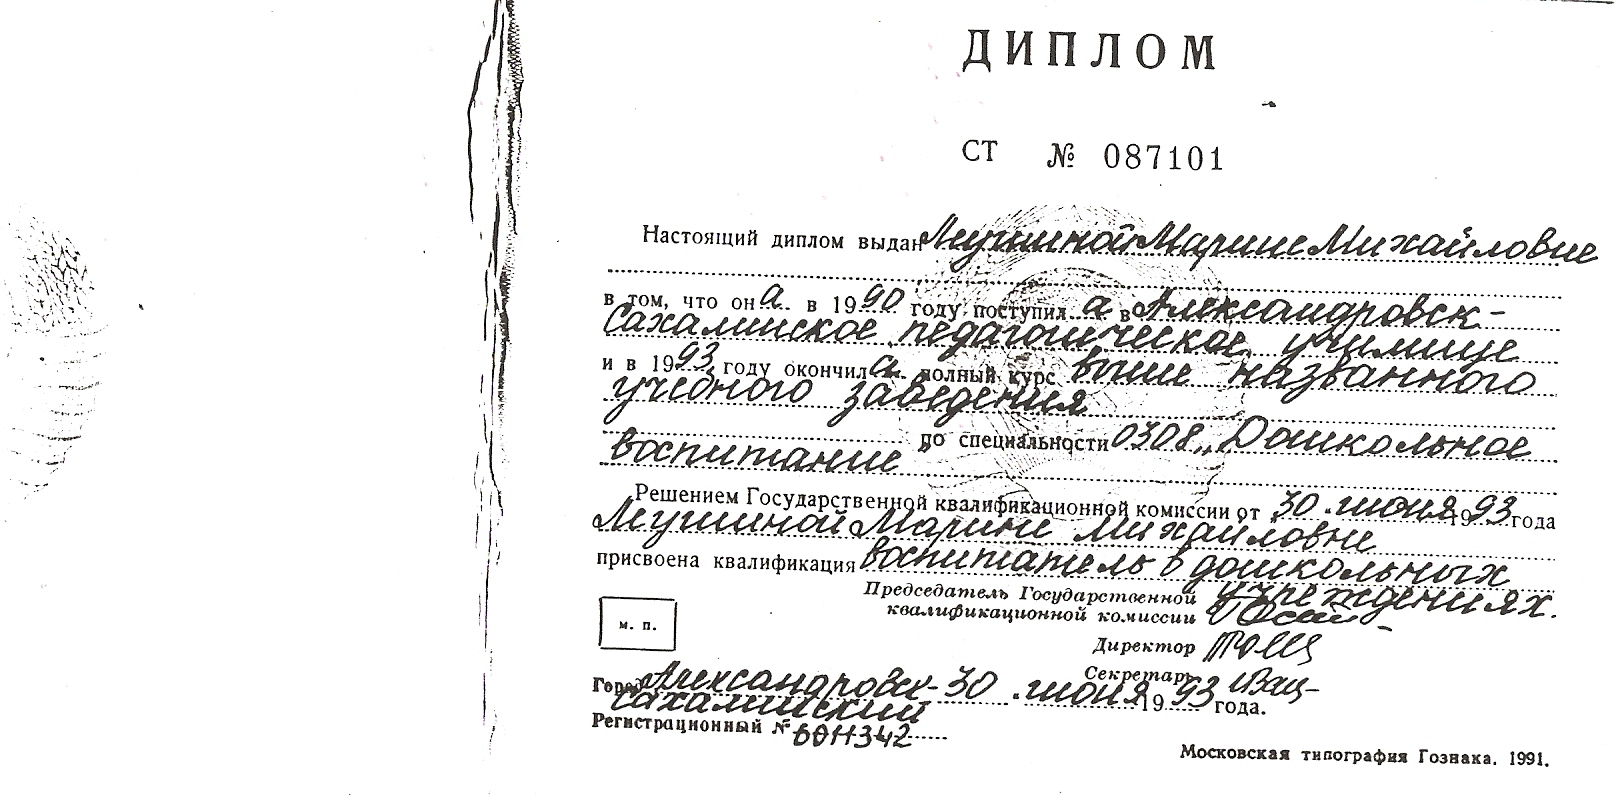 ДИПЛОМ
СТ № 087101
Настоящий диплом выдан Мушиной Марине Михайловне
в том, что он а в 19 90 году поступил а в Александровск-
Сахалинское педагогическое училище
и в 19 93 году окончил а полный курс выше названного
учебного заведения
по специальности 0308 „Дошкольное
воспитание
Решением Государственной квалификационной комиссии от 30 июня 19 93 года
Мушиной Марине Михайловне
присвоена квалификация воспитатель в дошкольных
учреждениях.
Председатель Государственной
квалификационной комиссии
Директор
Секретарь
м. п.
Город Александровск- 30 июня 19 93 года.
Сахалинский
Регистрационный №
Московская типография Гознака. 1991.